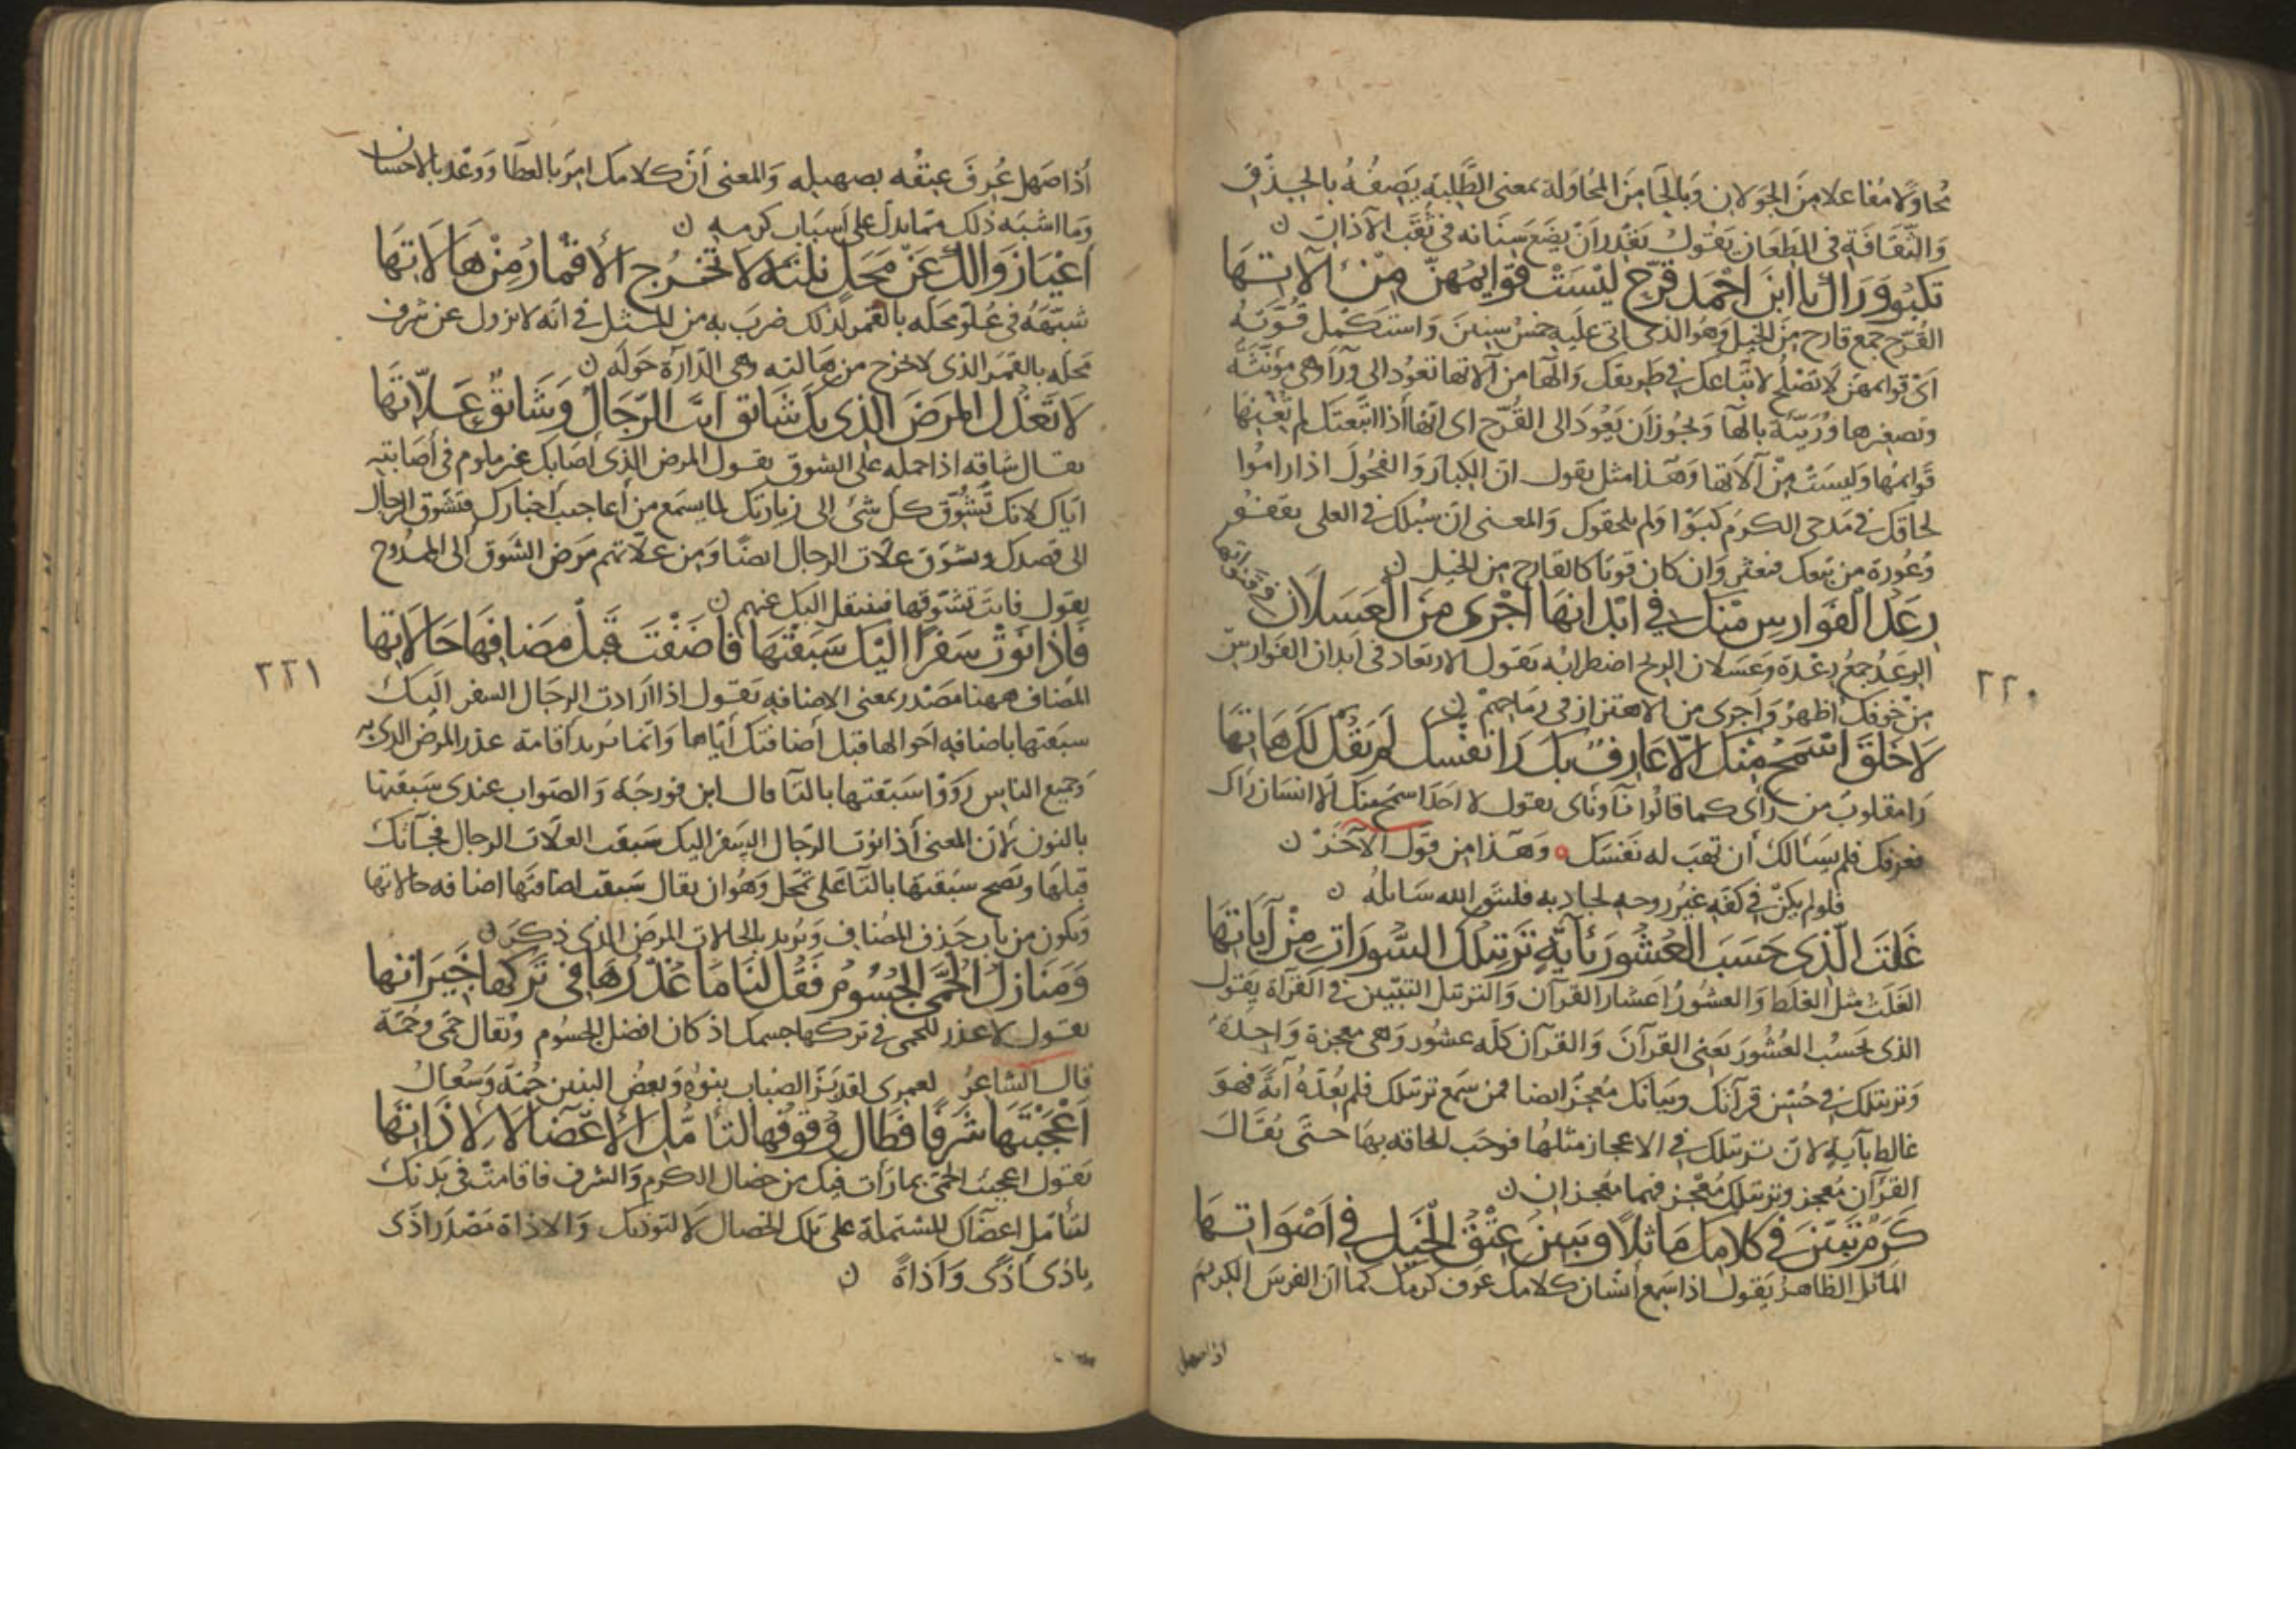 مُجاوِلًا مُفاعلا من الجَوَلان وَبالحَا مِنَ المُحَاوَلة بمعنى الطَّلب يَصِفُهُ بالحِذْقِ
وَالثَّقافَةِ في الطِّعَان يَقُول يَقْدر اَنْ يضَعَ سِنَانه في ثقبِ الآذان ن
تكبُو وَرَاك يا ابنَ اَحْمَد قُرَّحٌ لَيْسَتْ قوَايمُهنّ مِنْ آلاتهَا
القُرَّح جمع قارح مِنَ الخيل وَهُوَ الذى اتى عليهِ خمسُ سِنينَ وَاستكمل قُوَّتهُ
اَىْ قوايمهنّ لا تصْلُح لاتّباعك في طريقك وَالهَا من آلاتها تعُود الى وَرَآ وهى مؤنثة
وتصغيرها وُرَيّئة بالهآ ويجُوز اَن يَعُودَ الى القُرَّح اى انّها اذا اتّبعتك لم تُعِنهَا
قوايمُها وَليسَتْ مِنْ آلاتها وَهَذا مثل يقول انّ الكبارَ وَالفحُولَ اذا رامُوا
لحاقك في مَدى الكرَم كبَوْا وَلم يلحقوك وَالمعنى انّ سُبُلك في العلى
وُعُورة من تبعك فيعثر وَان كان قويّا كالقارح من الخيل ن
رِعَدُ الفَوَارسِ مِنْكَ في ابْدانهَا اَجْرى مِنَ العَسَلانِ في قنواتها
الرِعَدُ جمعُ رِعْدَة وَعَسَلان الرمح اضطرابُه يَقول الارتعاد في اَبدان الفوارس
مِنْ خوفك اظهرُ وَاَجرى من الاهتزاز في رمَاحهمْ ن
لا خَلْقَ اَسْمَحُ مِنْكَ الّا عَارِفٌ بكَ رَا نفْسكَ لَمْ يَقُلْ لَكَ هَاتِهَا
رَا مقلوبٌ من رَأى كما قالُوا نَآ وَنأى يقول لا احَدَ اسمَح منكَ الّا انسَان رَاك
فعرفك فلم يسَالك أن تهَبَ له نَفسَك وَهَذا من قول الآخَر ن
فلو لم يكنْ في كفّهِ غيرُ روحه لجاد بها فليتّق الله سَائلُه ن
غَلِتَ الّذى حَسَبَ العُشُورَ بآيةٍ تَرتيلُكَ السُّورَاتِ مِنْ آيَاتهَا
الغَلَت مثل الغلط وَالعشورُ اعشار القرآن وَالترتيل التبيين في القرآة يَقول
الذى يحسُب العُشُورَ يعنى القرآنَ وَالقرآن كلّه عشُور وَهى معجزة وَاحِدة
وَترتيلك في حُسْن قرآنك وبيَانك مُعجزٌ ايضا فمن سَمع ترتيلك فلم يعُدّهُ آيةً فهوَ
غالط بآيةٍ لانّ ترتيلك في الاعجاز مثلهَا فوجَب الحاقه بهَا حتّى يُقَال
القرآن مُعجز وترتيلك مُعْجز فهما مُعْجزان ن
كَرَمٌ تَبَيّنَ في كلامكَ مَاثِلًا وَيَبينُ عِتْقُ الخَيْل في اَصْوَاتهَا
المَاثل الظاهرُ يَقول اذا سَمع اِنسَان كلامك عَرَف كرمك كما انّ الفرسَ الكريم
اذا صهل
٢٢٠
اِذا صَهَل عُرِفَ عِتقُه بصهيله وَالمعنى أنّ كلامك امرٌ بالعطَا وَوعْدٌ بالاحسان
وَما اشبَه ذلك ممّا يدلّ على اَسبَاب كرمه ن
اَعْيَا زَوَالكَ عَنْ مَحَلٍّ نِلْتَهُ لا تَخْرُجُ الأقمَارُ مِنْ هَالاتهَا
شبّههُ في عُلوّ محَله بالقمر لذلك ضربَ به من المثل في انّه لا يزول عن شرف
محَله بالقمَر الذى لا يخرج من هَالته وهى الدّارة حَولَه ن
لا نَعْذُلُ المَرَضَ الذى بكَ شائقٌ انْتَ الرّجَالَ وَشَائقٌ عَلّاتهَا
يقال شاقه اذا حمله على الشوق يقول المرض الذى اَصَابك غير ملوم في اصَابته
ايّاك لانك تُشوّق كلّ شئ الى زيارتك لما يسمَع من أعاجيب اخبارك فتشوّق الرجال
الى قصدك وتشوّق علّات الرجال ايضًا وَمن علّاتهم مَرَض الشوق الى الممدُوح
يقول فانتَ تشوّقها فينتقل اليك عنهم ن
فَاِذا نَوَتْ سَفَرًا اليْكَ سَبَقْنَهَا فاَضَفْتَ قَبْلَ مُضَافِهَا حَالاتهَا
المُضاف ههنا مصْدر بمعنى الاضافهِ يَقول اذا ارَادت الرجَال السفر اليك
سبَقتها باضافهِ احَوالها قبل اضافتك ايّاها وَانّما يُريد اقامَة عذر المرَض الذى به
وَجميع الناس رَوَوْا سَبَقتها بالتآ قال ابن فورجَه وَالصّواب عندى سَبَقنها
بالنون لأنّ المعنى اذا نوَت الرّجال السّفر اليك سَبقَت العلّات الرجال فجآتك
قبلهَا ويَصح سَبَقتهَا بالتآ عَلى تمحّل وَهُوَ ان يقال سَبقت اضافتَها اضافه حالاتها
ويَكون من بَاب حَذف المُضاف وَيُريد بالحالات المرَض الذى ذكر ن
وَمَنَازِلُ الحُمَّى الجُسُومُ فقُلْ لنَا مَا عُذْرُهَا في تَرْكِهَا خَيْرَاتهَا
يقول لا عذر للحمى في تركها جسمك اذ كان افضل الجسُوم ويُقال حُمّى وحُمّة
قال الشاعرُ لعمرى لقد بَرّ الضباب بنوُه وَبعضُ البنين حُمّة وَسُعالُ
اَعْجَبْتَهَا شَرَفًا فَطَالَ وُقوُفُها لتَأمُّلِ الأعْضَآ لا لاَذَاتهَا
يَقول اعجبت الحمّى بما رَأت فيك من خصال الكرم وَالشرف فاقامَتْ في بَدنك
لتأمّل اعضآك المشتملة على تلك الخصال لا لتوذيك وَالاذاة مَصْدر اذى
ياذى اَذًى وَاَذاةً ن
٢٢١